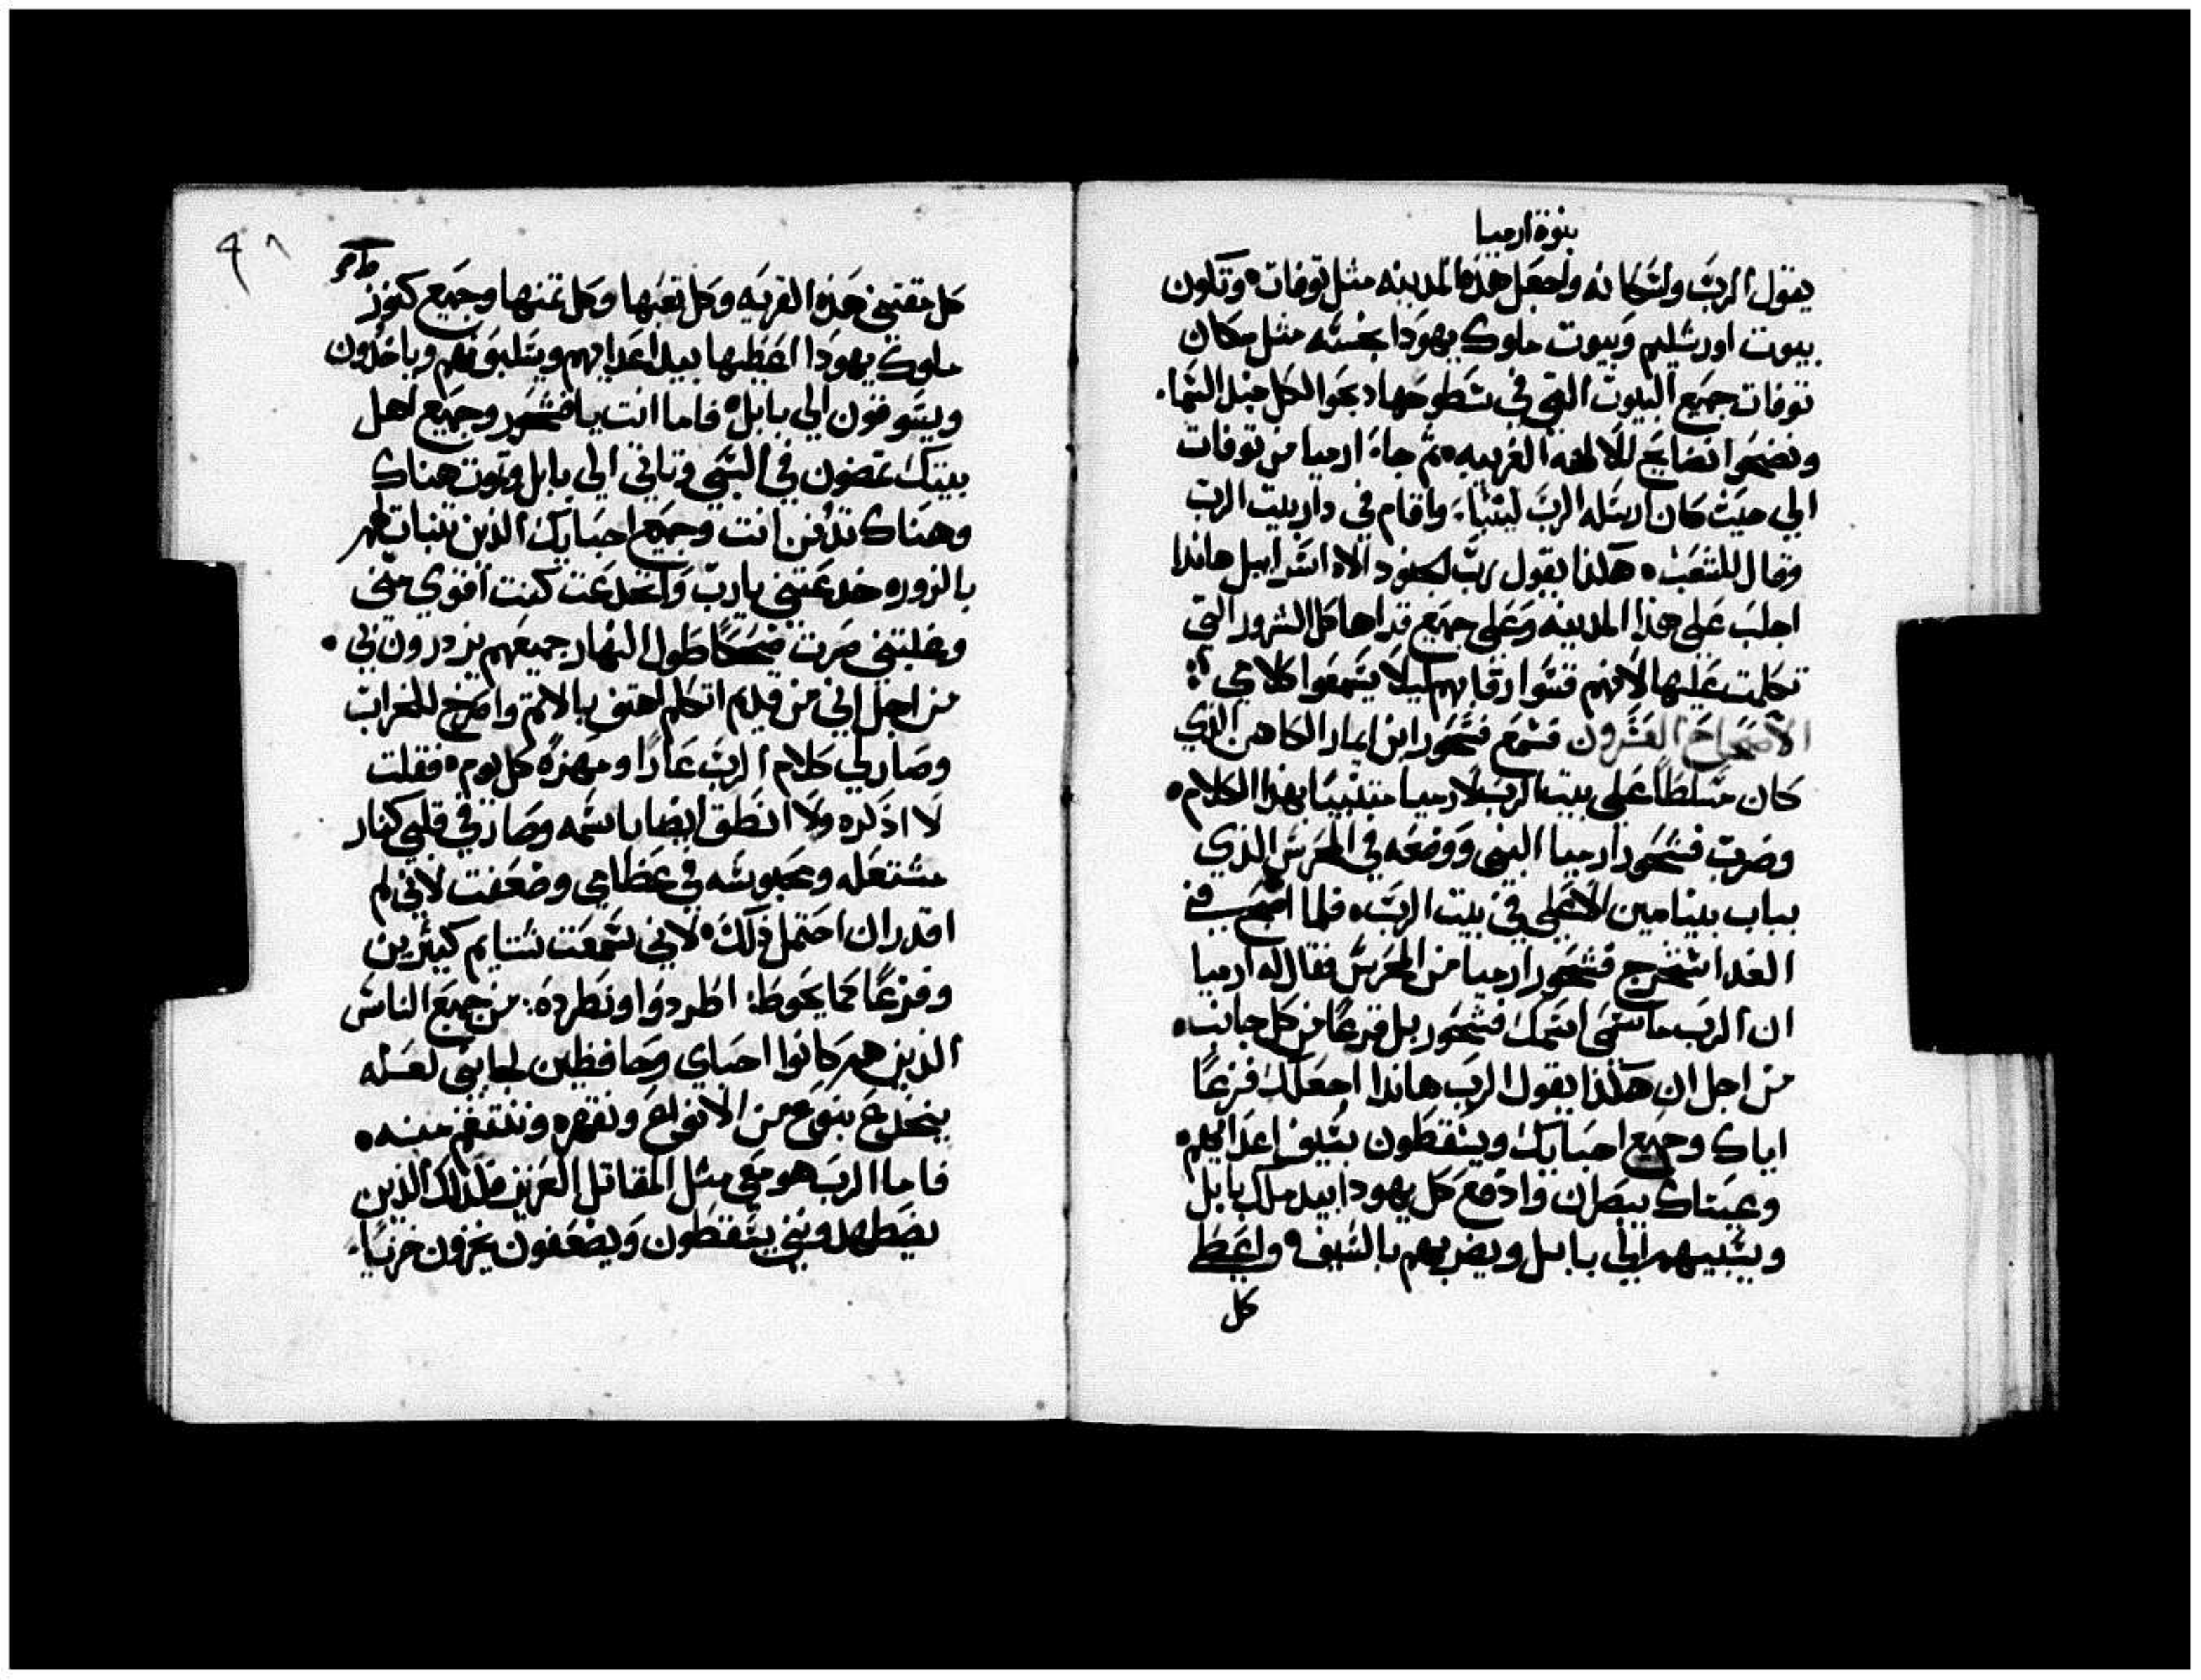 بنوة ارميا
يقول الرب ولسكانه واجعل هذه المدينه مثل توفات وتكون
بيوت اورشليم وبيوت ملوك يهودا نجسه مثل مكان
توفات جميع البيوت التي في سطوحها دبحوا لكل جند السما
ونضحوا نضايح للالهه الغريبه ثم جاء ارميا من توفات
الي حيث كان ارسله الرب ليتنبا واقام في دار بيت الرب
وقال للشعب هكذا يقول رب الجنود الاه اسراييل هاندا
اجلب علي هذا المدينه وعلي جميع قراها كل الشرور التي
تكلمت عليها لانهم قسوا رقابهم ليلا يسمعوا كلامي
الاصحاح العشرون فسمع فشحور ابن ايمار الكاهن الذي
كان مسلطا علي بيت الرب لارميا متنبيا بهذا الكلام
وضرب فشحور ارميا النبي ووضعه في الحرس الذي
بباب بنيامين الاعلي في بيت الرب فلما اصبح في
الغد استخرج فشحور ارميا من الحرس فقال له ارميا
ان الرب ما سمي اسمك فشحور بل فزعا من كل جانب
من اجل ان هكذا يقول الرب هاندا اجعلك فزعا
اياك وجميع احبايك ويسقطون بسيف اعدايهم
وعيناك يبصران وادفع كل يهودا بيد ملك بابل
ويسبيهم الي بابل ويضربهم بالسيف واعطي
كل
٩٨
كل مقتني هذه القريه وكل تعبها وكل ثمنها وجميع كنوز
ملوك يهودا اعطيها بيد اعدايهم ويسلبونهم وياخذون
ويسوقون الي بابل فاما انت يا فشحور وجميع اهل
بيتك تمضون في السبي وتاتي الي بابل وتموت هناك
وهناك تدفن انت وجميع احبايك الذين تنبات لهم
بالزور خدعتني يارب وانخدعت كنت اقوي مني
وغلبتني صرت ضحكا طول النهار جميعهم يزدرون بي
من اجل اني من قديم اتكلم اهتف بالاثم واصرخ للخراب
وصار لي كلام الرب عارا ومهزه كل يوم فقلت
لا اذكره ولا انطق ايضا باسمه وصار في قلبي كنار
مشتعله ومحبوسه في عظامي وضعفت لاني لم
اقدر ان احتمل ذلك لاني سمعت شتايم كثيرين
وفزعا مما يحوط اطردوا ونطرده من جميع الناس
الذين هم كانوا احباي وحافظين لجانبي لعله
ينخدع بنوع من الانواع ونقهره وننتقم منه
فاما الرب هو معي مثل المقاتل العزيز فلذلك الذين
يضطهدونني يسقطون ويضعفون يخزون خزيا